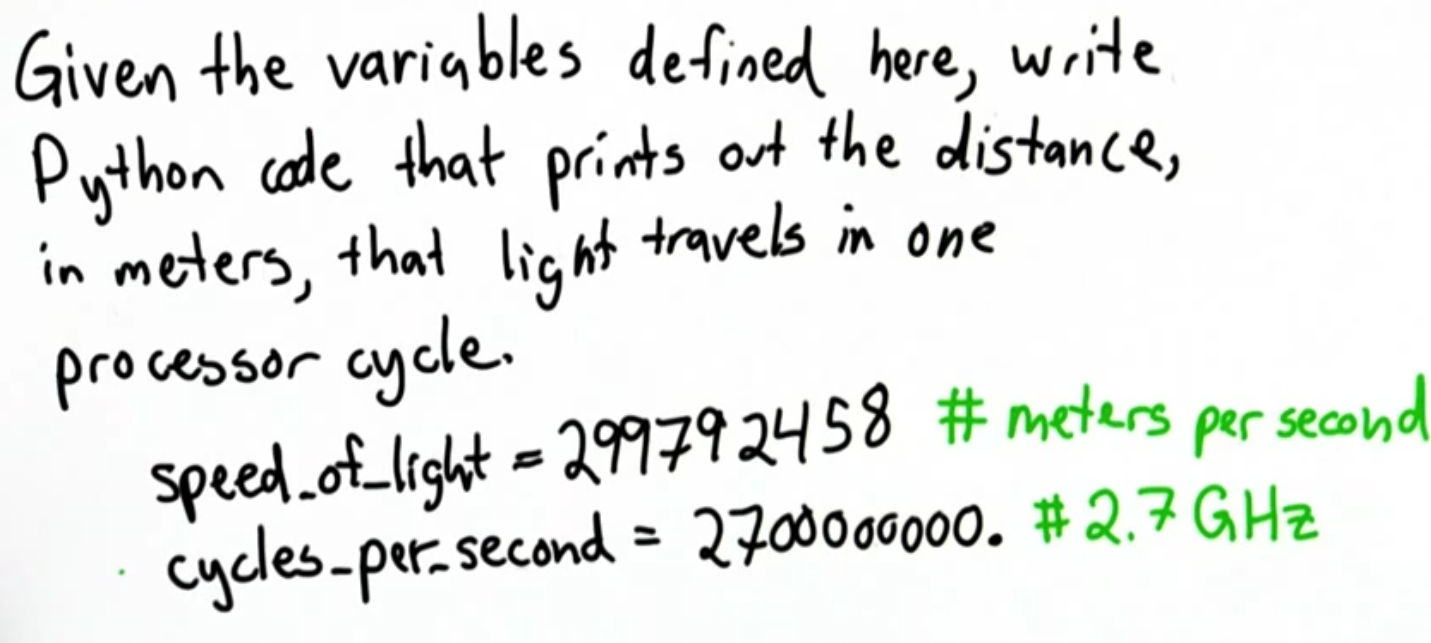 Given the variables defined here, write
Python code that prints out the distance,
in meters, that light travels in one
processor cycle.
speed_of_light = 299792458 # meters per second
cycles_per_second = 2700000000. # 2.7 GHz